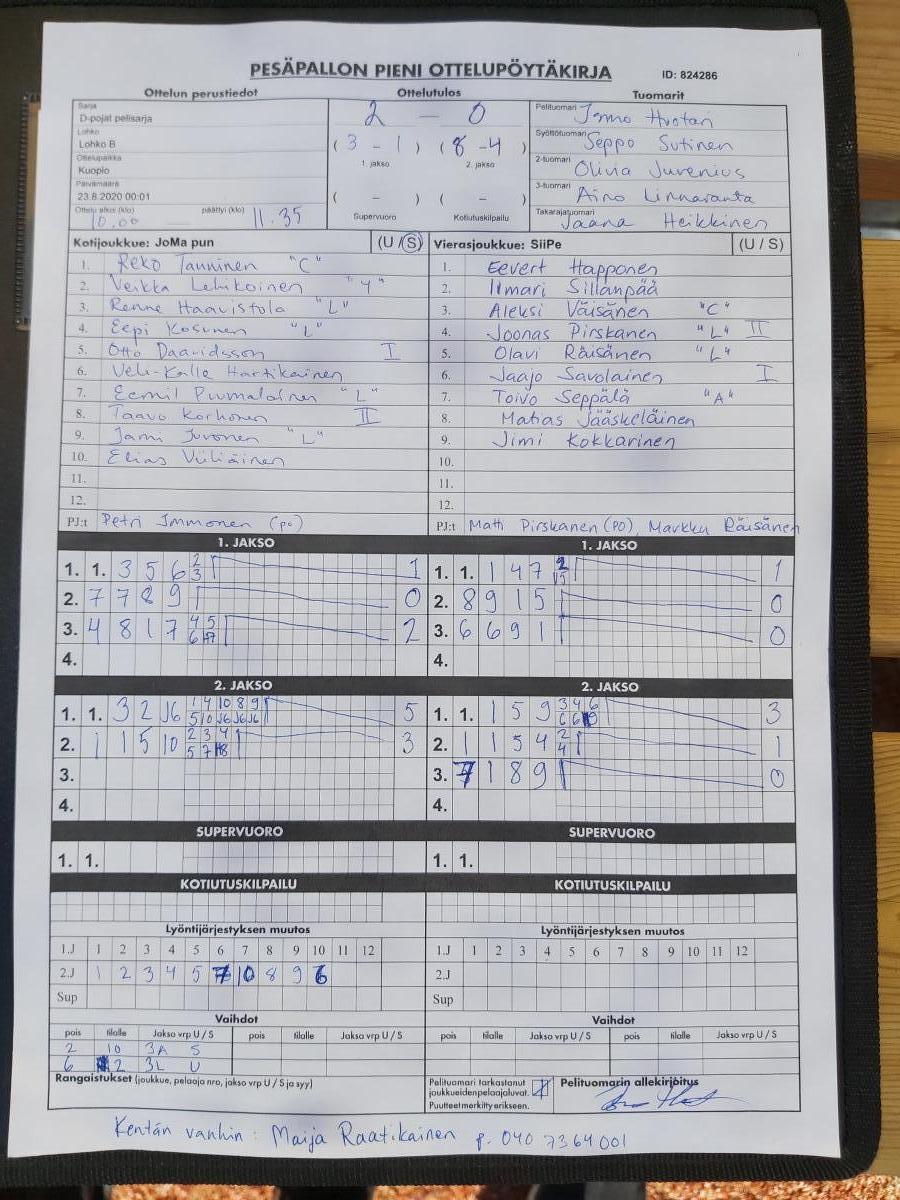 PESÄPALLON PIENI OTTELUPÖYTÄKIRJA ID: 824286
Ottelun perustiedot Ottelutulos Tuomarit
Sarja
D-pojat pelisarja
Lohko
Lohko B
Ottelupaikka
Kuopio
Päivämäärä
23.8.2020 00:01
Ottelu alkoi (klo) päättyi (klo)
10.00 11.35
2 - 0
( 3 - 1 ) ( 8 - 4 )
1. jakso 2. jakso
( - ) ( - )
Supervuoro Kotiutuskilpailu
Pelituomari Jarmo Huotari
Syöttötuomari Seppo Sutinen
2-tuomari Olivia Juvenius
3-tuomari Aino Linnavanta
Takarajatuomari Jaana Heikkinen
Kotijoukkue: JoMa pun (U / S)
1. Reko Tanninen "C"
2. Veikka Lehikoinen "4"
3. Renne Haavistola "L"
4. Eepi Kosunen "L"
5. Otto Daavidsson I
6. Veli-Kalle Hartikainen
7. Eemil Puumalainen "L"
8. Taavo Korhonen II
9. Jami Juvonen "L"
10. Elias
11.
12.
PJ:t Petri Immonen (po)
Vierasjoukkue: SiiPe (U / S)
1. Eevert Happonen
2. Ilmari Sillanpää
3. Aleksi Väisänen "C"
4. Joonas Pirskanen "L" II
5. Olavi Räisänen "L"
6. Jaajo Savolainen I
7. Toivo Seppälä "A"
8. Matias Jääskeläinen
9. Jimi Kokkarinen
10.
11.
12.
PJ:t Matti Pirskanen (PO), Markku Räisänen
1. JAKSO 1. JAKSO
1. 1. 3 5 6 2 3 1
2. 7 7 8 9 0
3. 4 8 1 7 4 5 6 2
4.
1. 1. 1 4 7 2 1
2. 8 9 1 5 0
3. 6 6 9 1 0
4.
2. JAKSO 2. JAKSO
1. 1. 3 2 J6 1 4 10 8 9 5 10 J6 J6 J6 5
2. 1 1 5 10 2 3 4 5 7 3
3.
4.
1. 1. 1 5 9 3 4 6 6 6 3
2. 1 1 5 4 2 4 1
3. 7 1 8 9 0
4.
SUPERVUORO SUPERVUORO
1. 1. 1. 1.
KOTIUTUSKILPAILU KOTIUTUSKILPAILU
Lyöntijärjestyksen muutos Lyöntijärjestyksen muutos
1.J 1 2 3 4 5 6 7 8 9 10 11 12
2.J 1 2 3 4 5 7 10 8 9 6
Sup
1.J 1 2 3 4 5 6 7 8 9 10 11 12
2.J
Sup
Vaihdot Vaihdot
pois tilalle Jakso vrp U / S pois tilalle Jakso vrp U / S
2 10 3A S
6 2 3L U
pois tilalle Jakso vrp U / S pois tilalle Jakso vrp U / S
Rangaistukset (joukkue, pelaaja nro, jakso vrp U / S ja syy)
Pelituomari tarkastanut
joukkueidenpelaajaluvat.
Puutteet merkitty erikseen.
Pelituomarin allekirjoitus
Kentän vanhin : Maija Raatikainen p. 040 7364 001